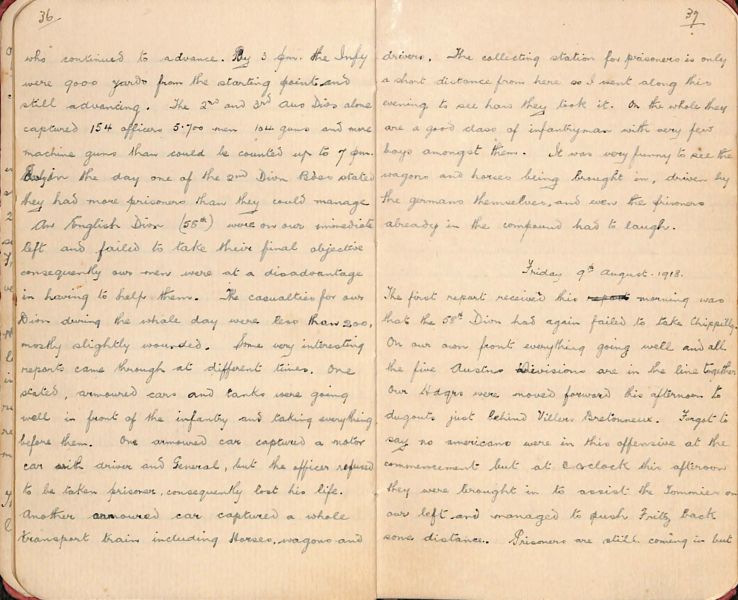 36
who continued to advance. By 3 pm. the Infy
were 9000 yards from the starting point and
still advancing. The 2nd and 3rd Aus Divs alone
captured 154 officers 5.700 men 104 guns and more
machine guns than could be counted up to 7 pm.
in the day one of the 2nd Divn Bdes stated
they had more prisoners than they could manage
An English Divn (58th) were on our immediate
left and failed to take their final objective
consequently our men were at a disadvantage
in having to help them. The casualties for our
Divn during the whole day were less than 200,
mostly slightly wounded. Some very interesting
reports came through at different times. One
stated, armoured cars and tanks were going
well in front of the infantry and taking everything
before them. One armoured car captured a motor
car with driver and General, but the officer refused
to be taken prisoner, consequently lost his life.
Another armoured car captured a whole
transport train including Horses, wagons and
37
drivers. The collecting station for prisoners is only
a short distance from here so I went along this
evening to see how they took it. On the whole they
are a good class of infantryman with very few
boys amongst them. It was very funny to see the
wagons and horses being brought in, driven by
the germans themselves, and even the prisoners
already in the compound had to laugh.
Friday 9th August. 1918.
The first report received this morning was
that the 58th Divn had again failed to take Chippilly.
On our own front everything going well and all
the five Austns Divisions are in the line together
Our Hdqrs were moved forward this afternoon to
dugouts just behind Villers Bretonneux. Forgot to
say no americans were in this offensive at the
commencement but at oclock this afternoon
they were brought in to assist the Tommies on
our left and managed to push Fritz back
some distance. Prisoners are still coming in but